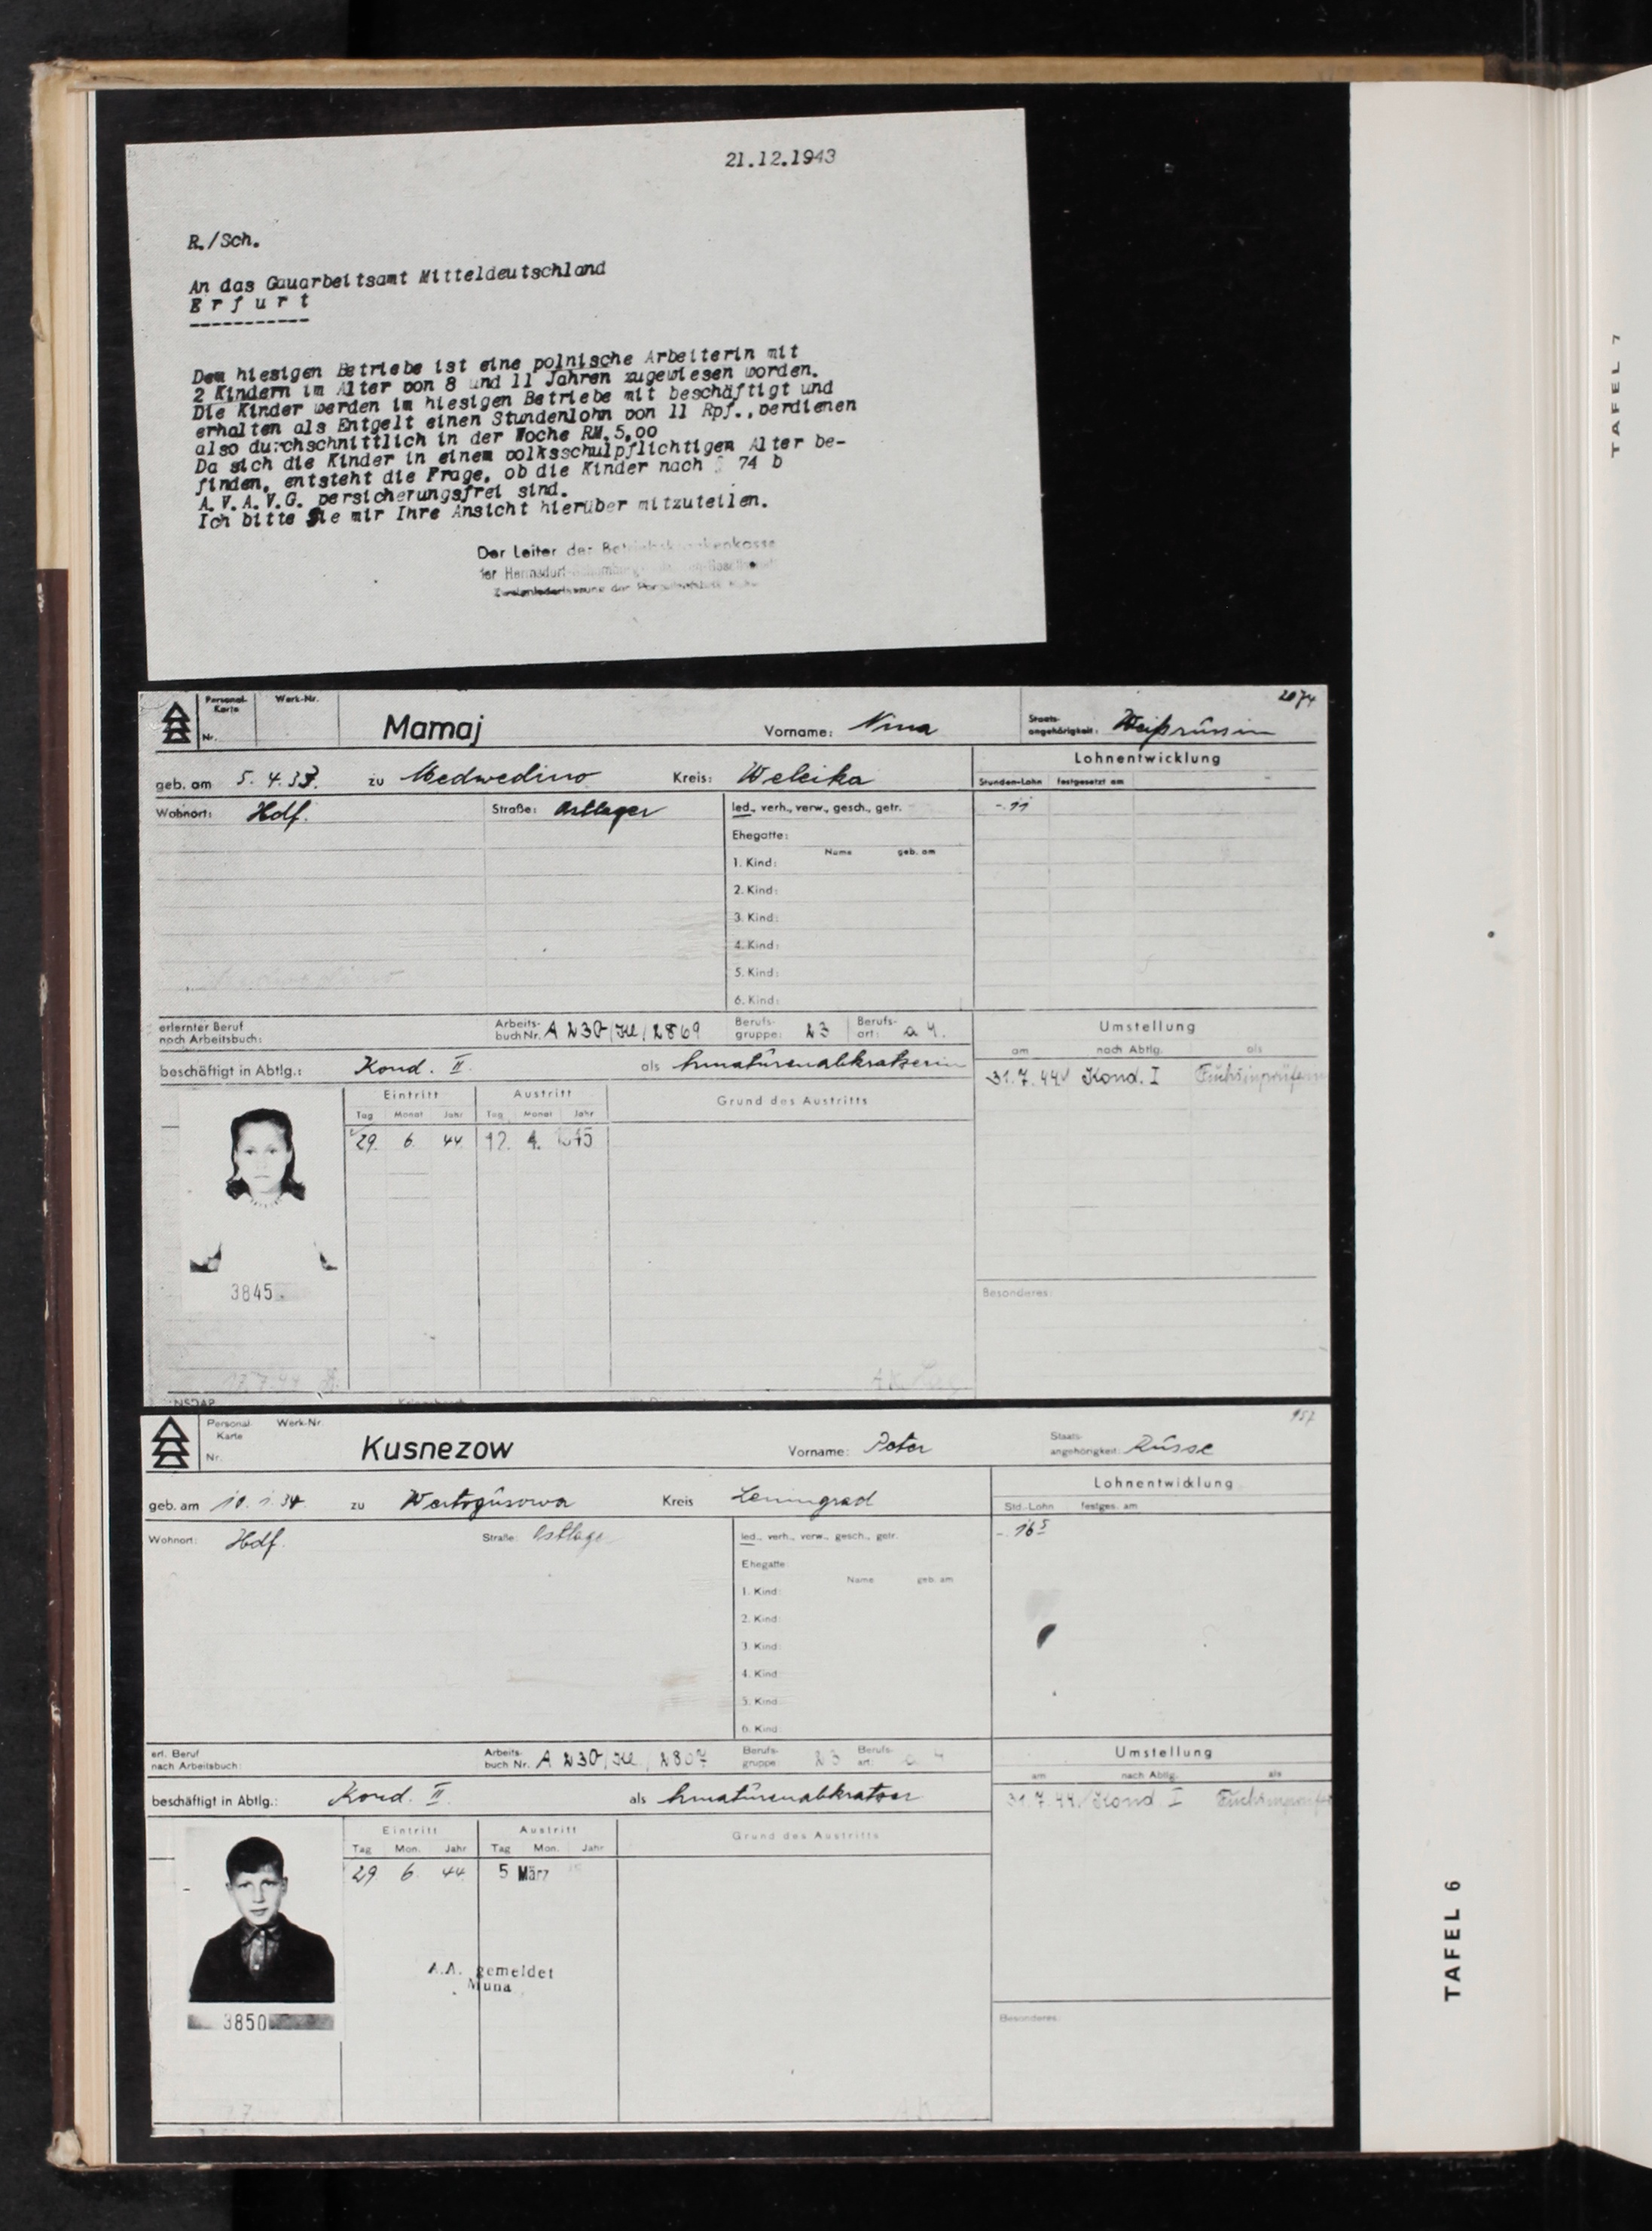 21.12.1943
R./Sch.
An das Gauarbeitsamt Mitteldeutschland
E r f u r t
-----------
Dem hiesigen Betriebe ist eine polnische Arbeiterin mit
2 Kindern im Alter von 8 und 11 Jahren zugewiesen worden.
Die Kinder werden im hiesigen Betriebe mit beschäftigt und
erhalten als Entgelt einen Stundenlohn von 11 Rpf., verdienen
also durchschnittlich in der Woche RM.5,00
Da sich die Kinder in einem volksschulpflichtigen Alter be-
finden, entsteht die Frage, ob die Kinder nach § 74 b
A.V.A.V.G. versicherungsfrei sind.
Ich bitte Sie mir Ihre Ansicht hierüber mitzuteilen.
Der Leiter der Betriebskrankenkasse
2074
Personal-Karte Nr. Werk-Nr. Mamaj Vorname: Nina Staats-angehörigkeit: Weißrussin
geb. am 5. 4. 33. zu Medwedino Kreis: Weleika Lohnentwicklung
Stunden-Lohn festgesetzt am
Wohnort: Hdf. Straße: Ostlager led., verh., verw., gesch., getr. -.11
Ehegatte:
Name geb. am
1. Kind:
2. Kind:
3. Kind:
4. Kind:
5. Kind:
6. Kind:
erlernter Beruf nach Arbeitsbuch: Arbeits-buch Nr. A 230/ /2869 Berufs-gruppe: 23 Berufs-art: a 4. Umstellung
am nach Abtlg. als
beschäftigt in Abtlg.: Kond. II. als Armaturenabkratzerin 31.7.44 Kond. I
Eintritt Austritt Grund des Austritts
Tag Monat Jahr Tag Monat Jahr
29. 6. 44 12. 4. 1945
3845
Besonderes:
957
Personal Karte Nr. Werk-Nr. Kusnezow Vorname: Peter Staats-angehörigkeit: Russe
geb. am 10. 1. 34. zu Kreis Leningrad Lohnentwicklung
Std.-Lohn festges. am
Wohnort: Hdf. Straße: Ostlager led., verh., verw., gesch., getr. -.16⁵
Ehegatte
Name geb. am
1. Kind:
2. Kind:
3. Kind:
4. Kind
5. Kind
6. Kind:
erl. Beruf nach Arbeitsbuch: Arbeits-buch Nr. A 230/ /2807 Berufs-gruppe: 23 Berufs-art: a 4 Umstellung
am nach Abtlg. als
beschäftigt in Abtlg.: Kond. II. als Armaturenabkratzer 31.7.44 Kond I
Eintritt Austritt Grund des Austritts
Tag Mon. Jahr Tag Mon. Jahr
29 6 44 5 März
A.A. gemeldet
Muna
3850
Besonderes:
TAFEL 6
TAFEL 7